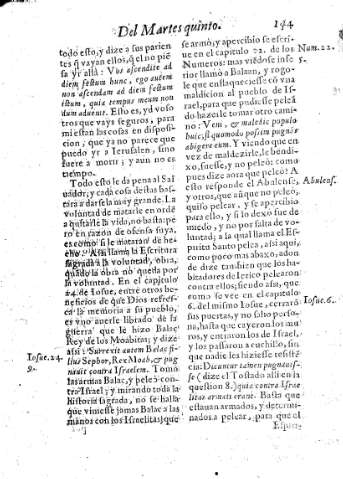 Del Martes quinto.
144
todo esto, y dize a sus parien
tes q̃ vayan ellos, q̃ el no piẽ
sa yr allà: Vos ascendite ad
diem festum hunc, ego autem
non ascendam ad diem festum
istum, quia tempus meum non
dum aduenit. Esto es, yd voso
tros que vays seguros, para
mi estan las cosas en disposi-
cion, que ya no parece que
puedo yr a Ierusalen, sino
fuere a morir; y aun no es
tiempo.
Todo esto le da pena al Sal
uador, y cada cosa destas bas-
tara a darsela muy grande. La
voluntad de matarle en ordẽ
a quitarle la vida, no basta; pe
ro en razon de ofensa suya,
es como si le mataran de he-
cho. Assi llama la Escritura
sagrada a la voluntad, obra,
quãdo la obra no queda por
la voluntad. En el capitulo
24. de Iosue, entre otros be
neficios de que Dios refres-
ca la memoria a su pueblo,
es vno auerle librado de la
guerra que le hizo Balac
Rey de los Moabitas; y dize
assi: Surrexit autem Balac fi-
lius Sephor, Rex Moab, & pug
nauit contra Israelem. Toma
las armas Balac, y peleò con-
tra Israel; y mirando toda la
historia sagrada, no se halla
que viniesse jamas Balac a las
manos con los Israelitas; que
Iosue. 24.
9.
se armò, y apercibio se escri-
ue en el capitulo 22. de los
Numeros: mas viẽdose infe
rior llamò a Balaam, y rogo-
le que enflaqueciesse cõ vna
maldicion al pueblo de Is-
rael, para que pudiesse peleã
do hazerle tomar otro cami-
no: Veni, & maledic populo
huic, si quomodo possim pugnãs
abigere eum. Y viendo que en
vez de maldezirle, le bendi-
xo, fuesse, y no peleò: como
pues dize aora que peleò? A
esto responde el Abulense,
y otros, que aũque no peleò,
quiso pelear, y se apercibio
para ello, y si lo dexò fue de
miedo, y no por falta de vo-
luntad; a la qual llama el Es-
piritu Santo pelea, assi aqui,
como poco mas abaxo, adon
de dize tambien que los ha-
bitadores de Ierico pelearon
contra ellos; siendo assi, que
como se vee en el capitulo
6. del mismo Iosue, cerrarõ
sus puertas, y no salio perso-
na, hasta que cayeron los mu
ros, y entraron los de Israel,
y los passaron a cuchillo, sin
que nadie les hiziesse resistẽ
cia: Dicuntur tamen pugnauis-
se (dize el Tostado alli en la
question 8.) quia contra Israe
litas armati erant. Basta que
estauan armados, y determi-
nados a pelear, para que el
Espiri-
Num. 22.
5.
Abulens.
Iosue. 6.